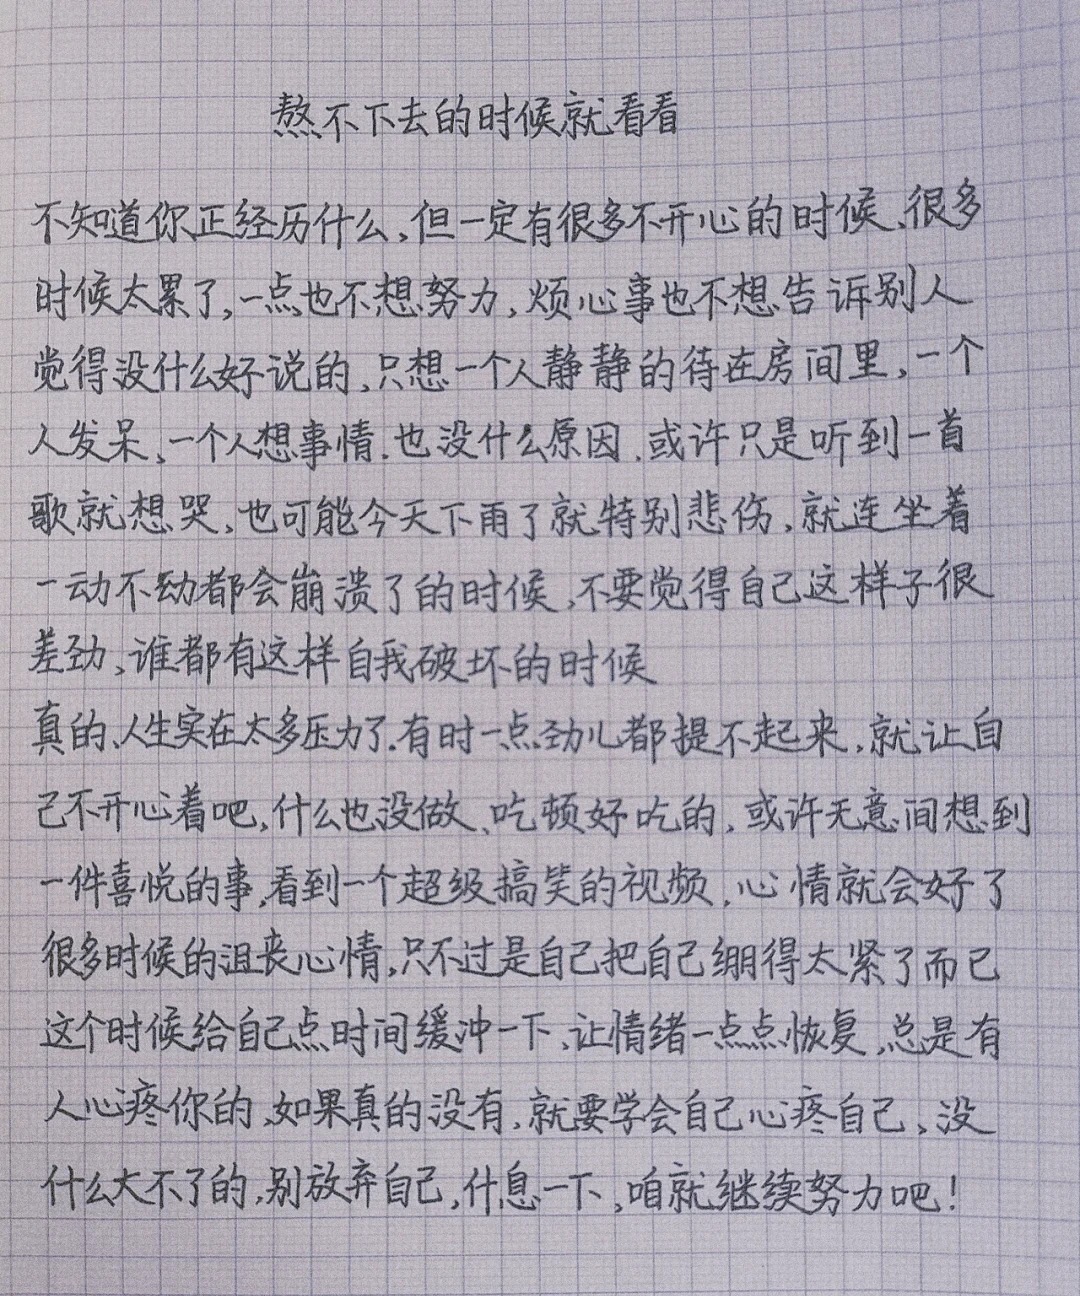 熬不下去的时候就看看
不知道你正经历什么,但一定有很多不开心的时候、很多
时候太累了,一点也不想努力,烦心事也不想告诉别人
觉得没什么好说的,只想一个人静静的待在房间里,一个
人发呆,一个人想事情.也没什么原因.或许只是听到一首
歌就想哭,也可能今天下雨了就特别悲伤,就连坐着
一动不动都会崩溃了的时候,不要觉得自己这样子很
差劲,谁都有这样自我破坏的时候
真的、人生实在太多压力了.有时一点劲儿都提不起来,就让自
己不开心着吧,什么也没做、吃顿好吃的,或许无意间想到
一件喜悦的事,看到一个超级搞笑的视频,心情就会好了
很多时候的沮丧心情,只不过是自己把自己绷得太紧了而已
这个时候给自己点时间缓冲一下、让情绪一点点恢复,总是有
人心疼你的,如果真的没有,就要学会自己心疼自己,没
什么大不了的,别放弃自己,什息一下,咱就继续努力吧!